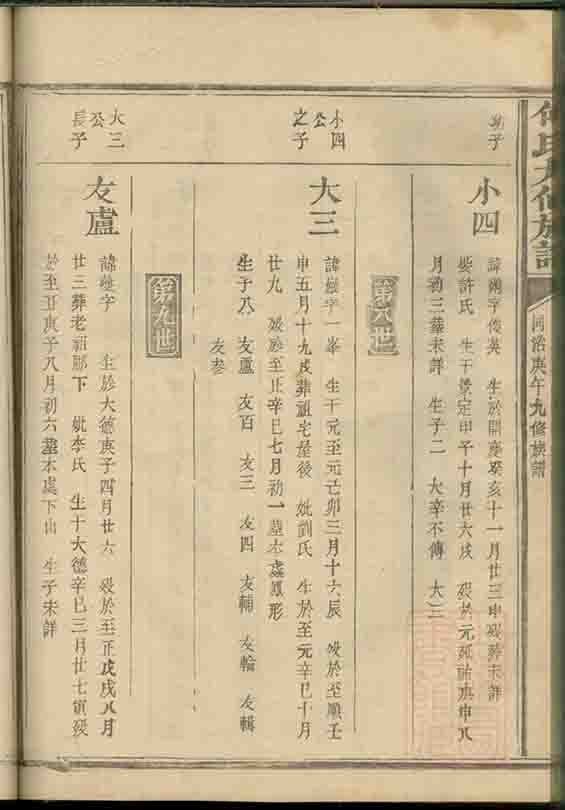 何氏九修族譜
同治庚午九修族譜
子
小四
諱 字俊英 生於開慶癸亥十一月廿三申歿葬未詳
娶許氏 生于景定甲子十月廿六戌 歿於元延祐庚申八
月初三葬未詳 生子二 大辛不傳 大三
第八世
小四
公
之子
大三
諱 字一峯 生于元至元己卯三月十六辰 歿於至順壬
申五月十九戌葬祖宅屋後 妣劉氏 生於至元辛巳十月
廿九 歿於至正辛巳七月初一葬本處鳳形
生子八 友盧 友百 友三 友四 友輔 友輪 友輯
友参
第九世
大三
公
長子
友盧
諱 字 生於大德庚子四月廿六 歿於至正戊戌八月
廿三葬老祖 下 妣李氏 生于大德辛巳三月廿七寅歿
於至正庚子八月初六葬本處下山 生子未詳